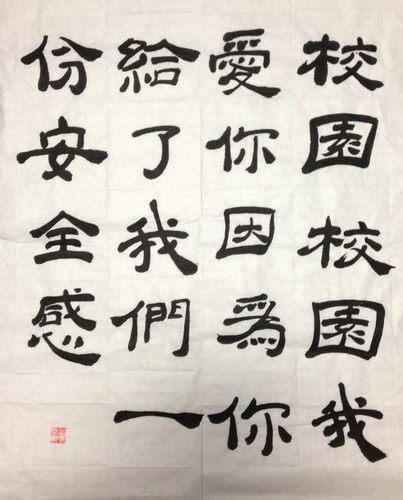 校園校園我
愛你因為你
給了我們一
份安全感